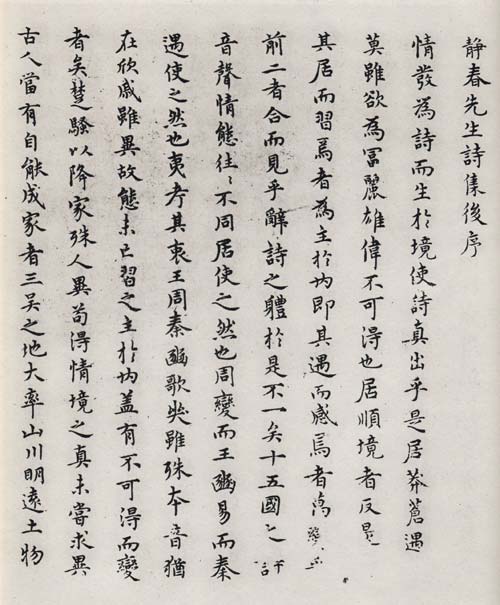 静春先生詩集後序
情發為詩而生於境使詩真出乎是居莽蒼遇
莫雖欲為冨麗雄偉不可得也居順境者反是
其居而習焉者為主於内即其遇而感焉者萬變
前二者合而見乎辭詩之軆於是不一矣十五國之
音聲情態往〻不同居使之然也周變而王豳易而秦
遇使之然也夷考其衷王周秦豳歌雖殊本音猶
在欣戚雖異故態未已習之主於内盖有不可得而變
者矣楚騷以降家殊人異苟得情境之真未嘗求異
古人當有自能成家者三吳之地大率山川明遠土物